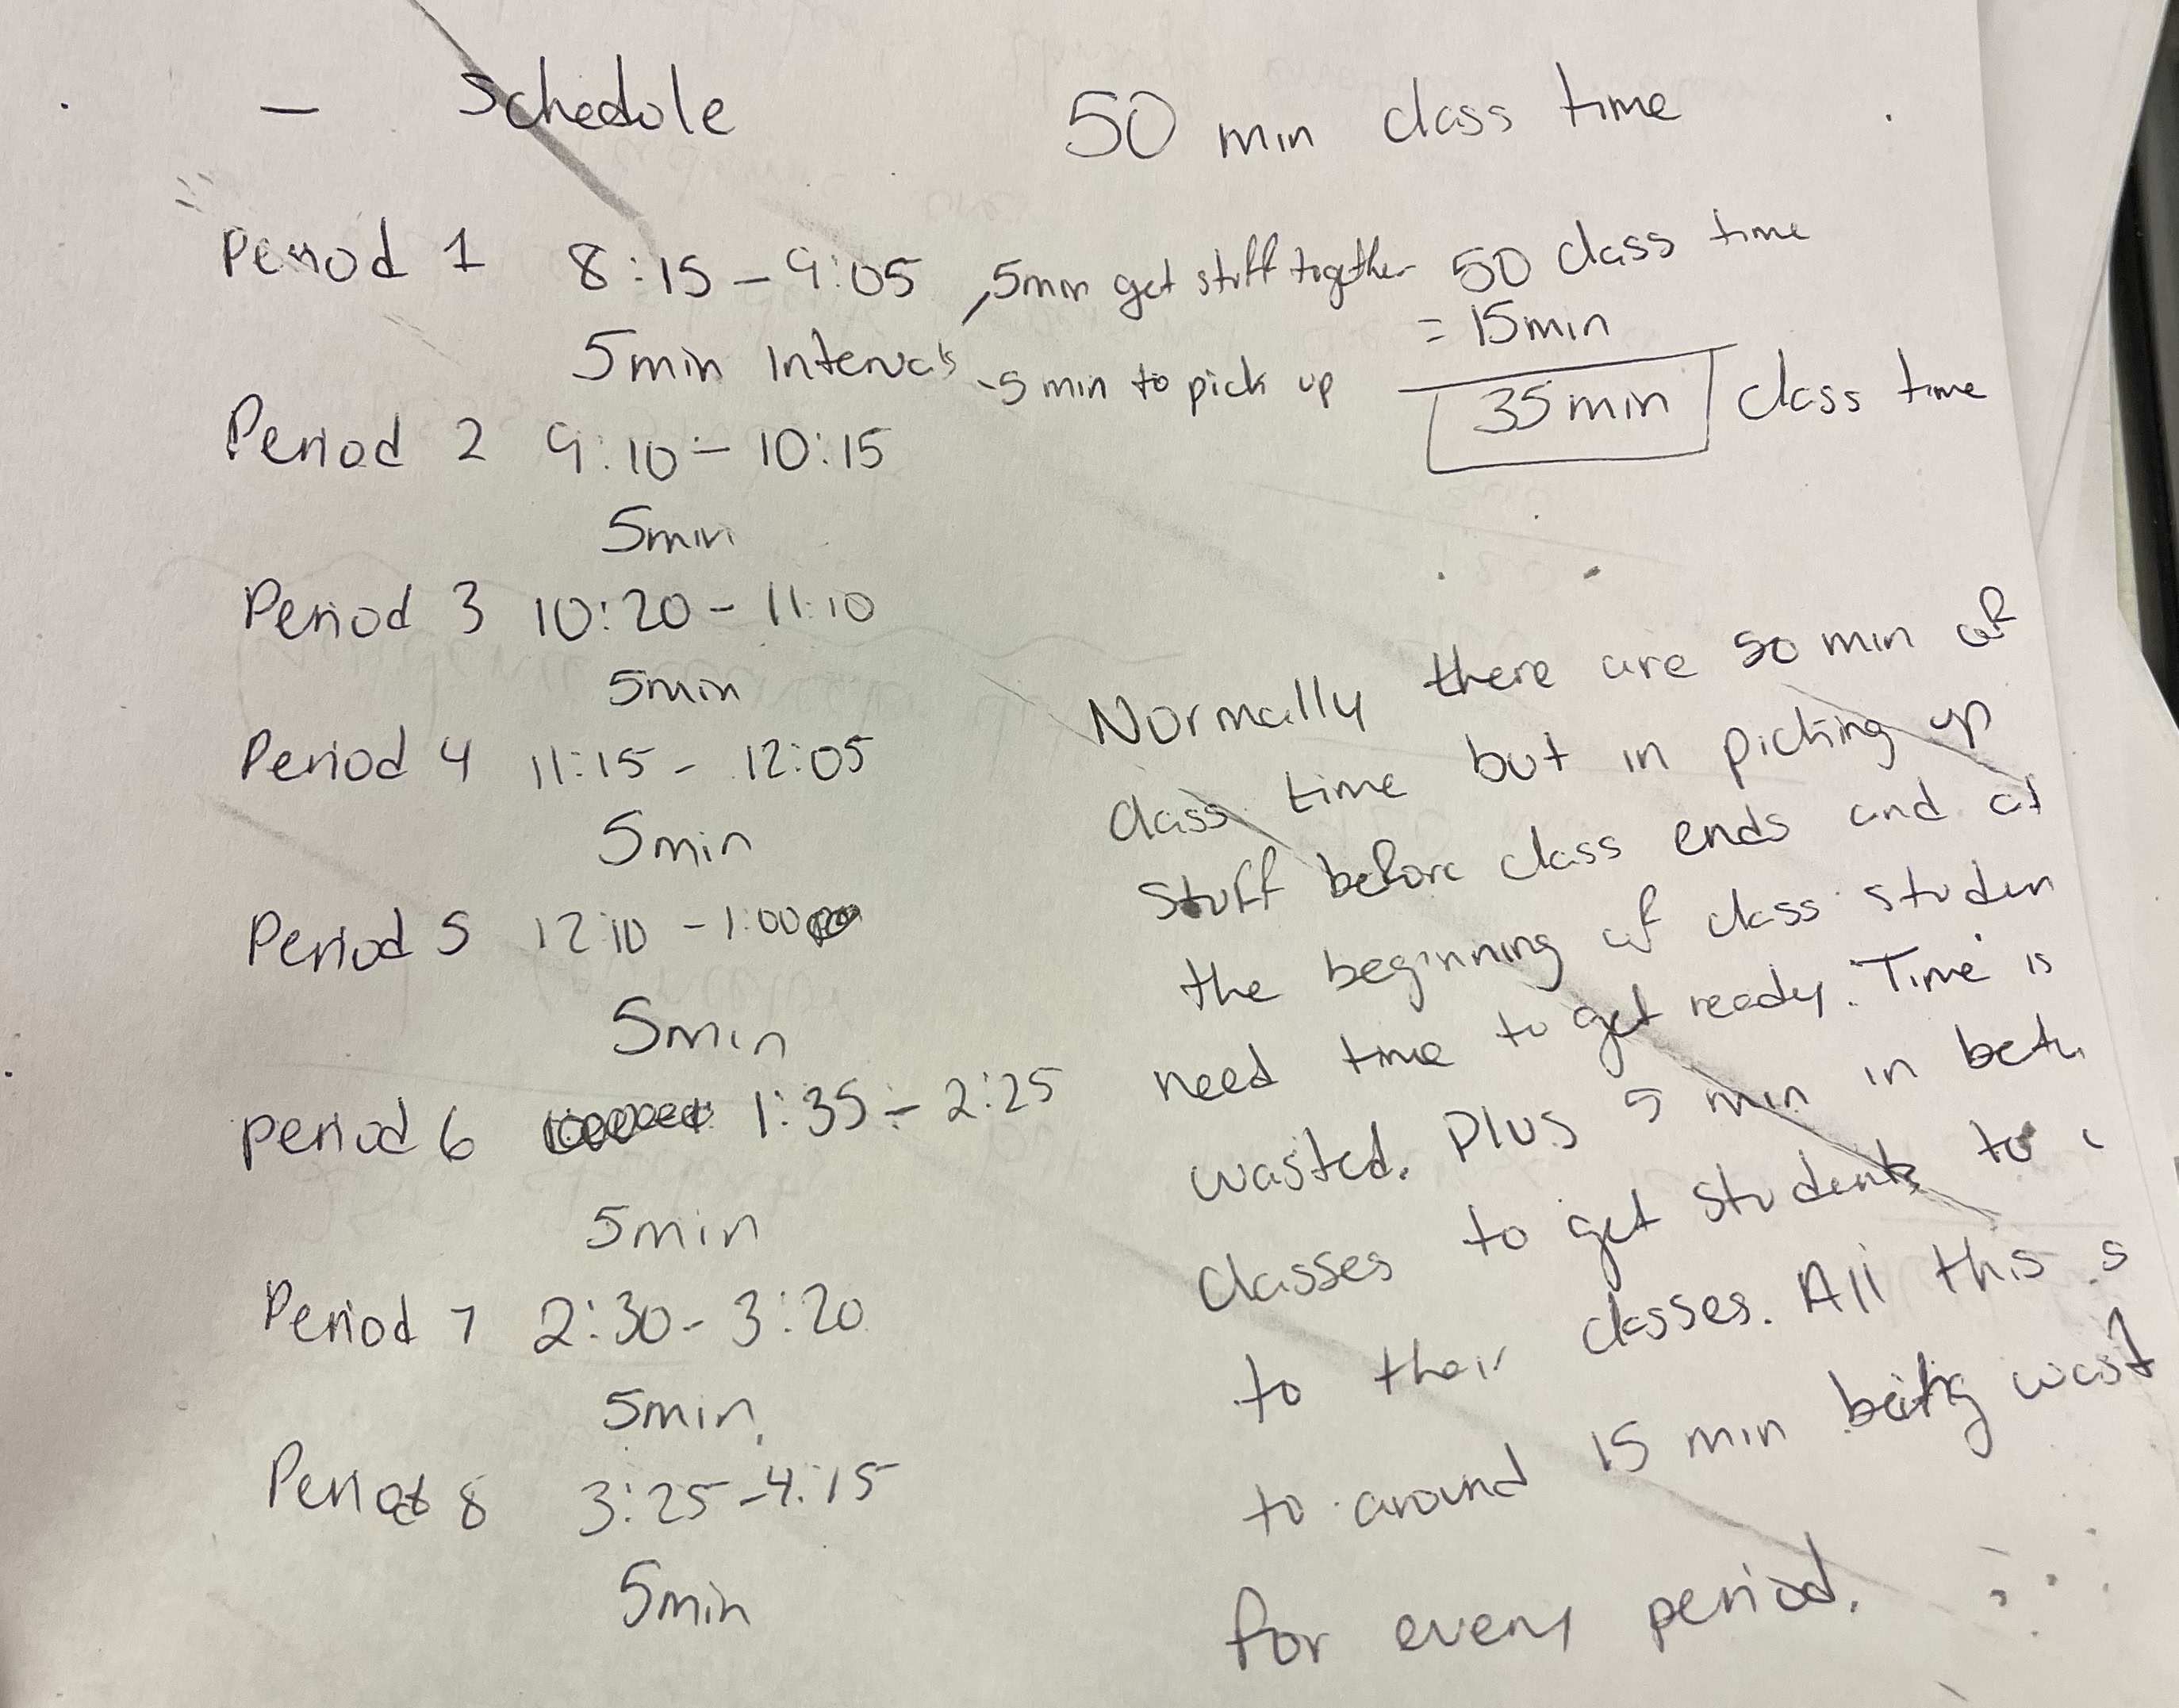 — Schedule 50 min class time
Period 1 8:15 – 9:05 , 5min get stuff together 50 class time
5min Intervals - 5 min to pick up = 15min
35min class time
Period 2 9:10 – 10:15
5min
Period 3 10:20 – 11:10
5min
Period 4 11:15 – 12:05
5min
Period 5 12:10 – 1:00
5min
Period 6 1:35 – 2:25
5min
Period 7 2:30 – 3:20
5min
Period 8 3:25 – 4:15
5min
Normally there are 50 min of
class time but in picking up
stuff before class ends and at
the beginning of class studen
need time to get ready. Time is
wasted. Plus 5 min in betw
classes to get students to
to their classes. All this s
to around 15 min being wast
for every period.